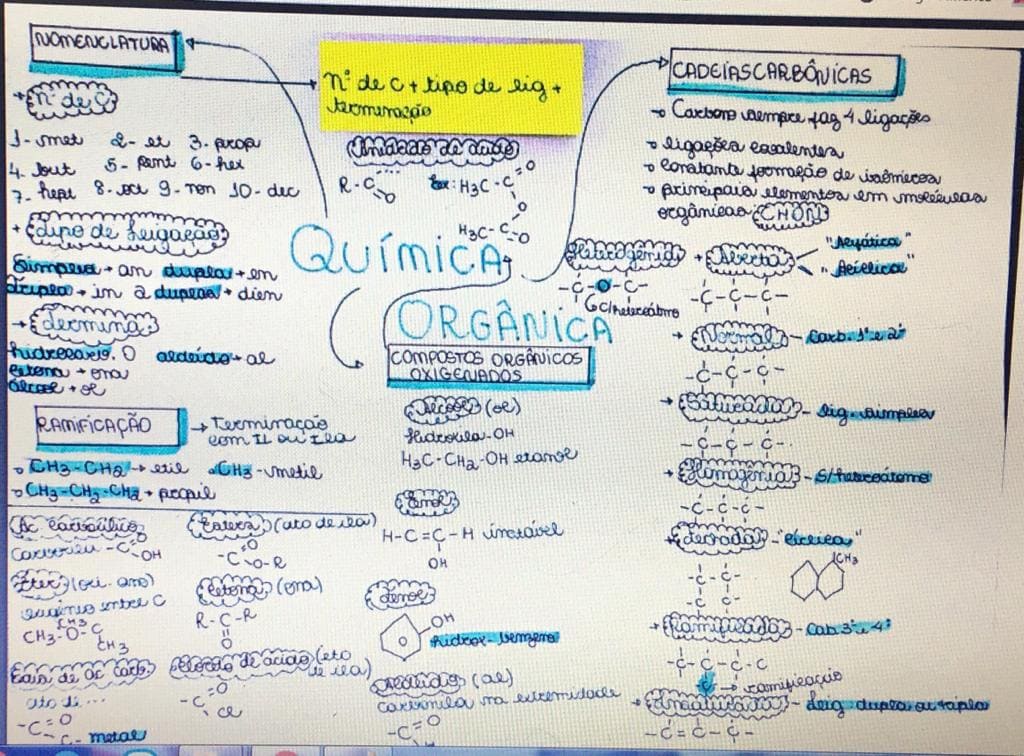 NOMENCLATURA
→ Nº de C
1- met 2- et 3- prop
4. but 5- pent 6- hex
7- hept 8- oct 9- non 10- dec
→ tipo de ligação
Simples → an dupla → en
tripla → in 2 duplas → dien
→ termina:
hidrocarb. O aldeído → al
cetona → ona
álcool → ol
Nº de C + tipo de lig +
terminação
Anidrido de ácido
R-C
O
Ex: H3C-C
O
O
H3C-C
O
QUÍMICA
ORGÂNICA
CADEIAS CARBÔNICAS
→ Carbono sempre faz 4 ligações
ligações covalentes
constante formação de isômeros
principais elementos em moléculas
orgânicas CHON
Heterogênia
-C-O-C-
C/heteroátomo
→ Aberta
"Alifática"
"Acíclica"
-C-C-C-
→ Normal - Carb. 1º e 2º
-C-C-C-
→ Saturada - lig. simples
-C-C-C-
→ Homogênia - S/heteroátomo
-C-C-C-
→ Fechada - "cíclica"
-C-C-
-C-C-
CH3
→ Ramificada - Cab 3º e 4º
-C-C-C-C
C → ramificação
→ Insaturada - Lig dupla ou tripla
-C=C-C-
COMPOSTOS ORGÂNICOS
OXIGENADOS
Álcool (ol)
Hidroxila-OH
H3C-CH2-OH etanol
Enol
H-C=C-H instável
OH
Fenol
OH
hidrox-benzeno
Aldeído (al)
Carbonila na extremidade
-C=O
RAMIFICAÇÃO
→ Terminação
com IL ou ila
CH3-CH2 → etil CH3 - metil
CH3-CH2-CH2 → propil
Ác carboxílico
-C=O
OH
Éter (oxi- ano)
oxigênio entre C
CH3
CH3-O-C
CH3
Sais de ác carb.
ato de ...
-C=O
- metal
Esteres (ato de ila)
O
-C
O-R
Cetona (ona)
R-C-R
O
Cloreto de ácido (eto
de ila)
-C=O
Cl